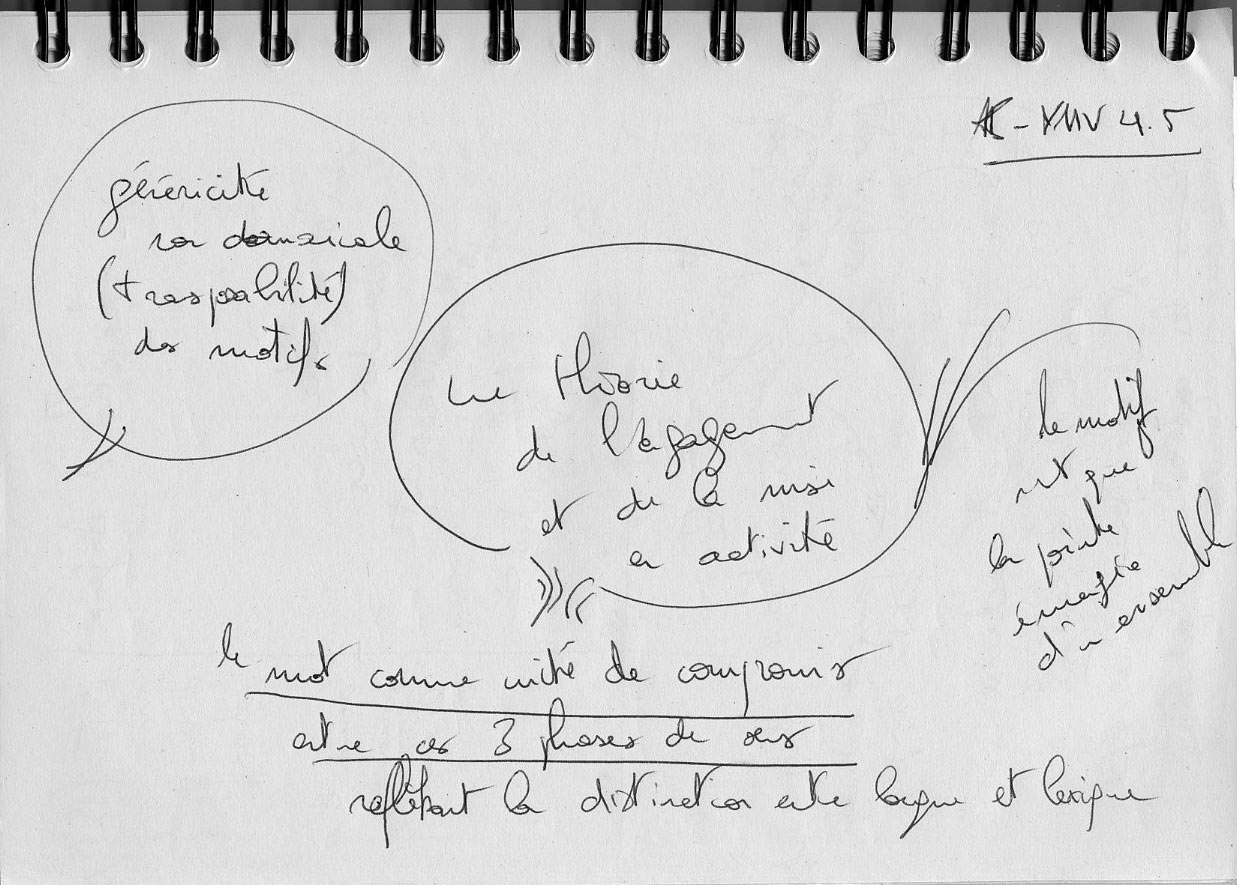 généricité
non domaniale
(transposabilité)
des motifs
une théorie
de l'engagement
et de la mise
en activité
le motif
n'est que
la pointe
émergée
d'un ensemble
le mot comme unité de compromis
entre ces 3 phases de sens
reflétant la distinction entre langue et lexique
4.5